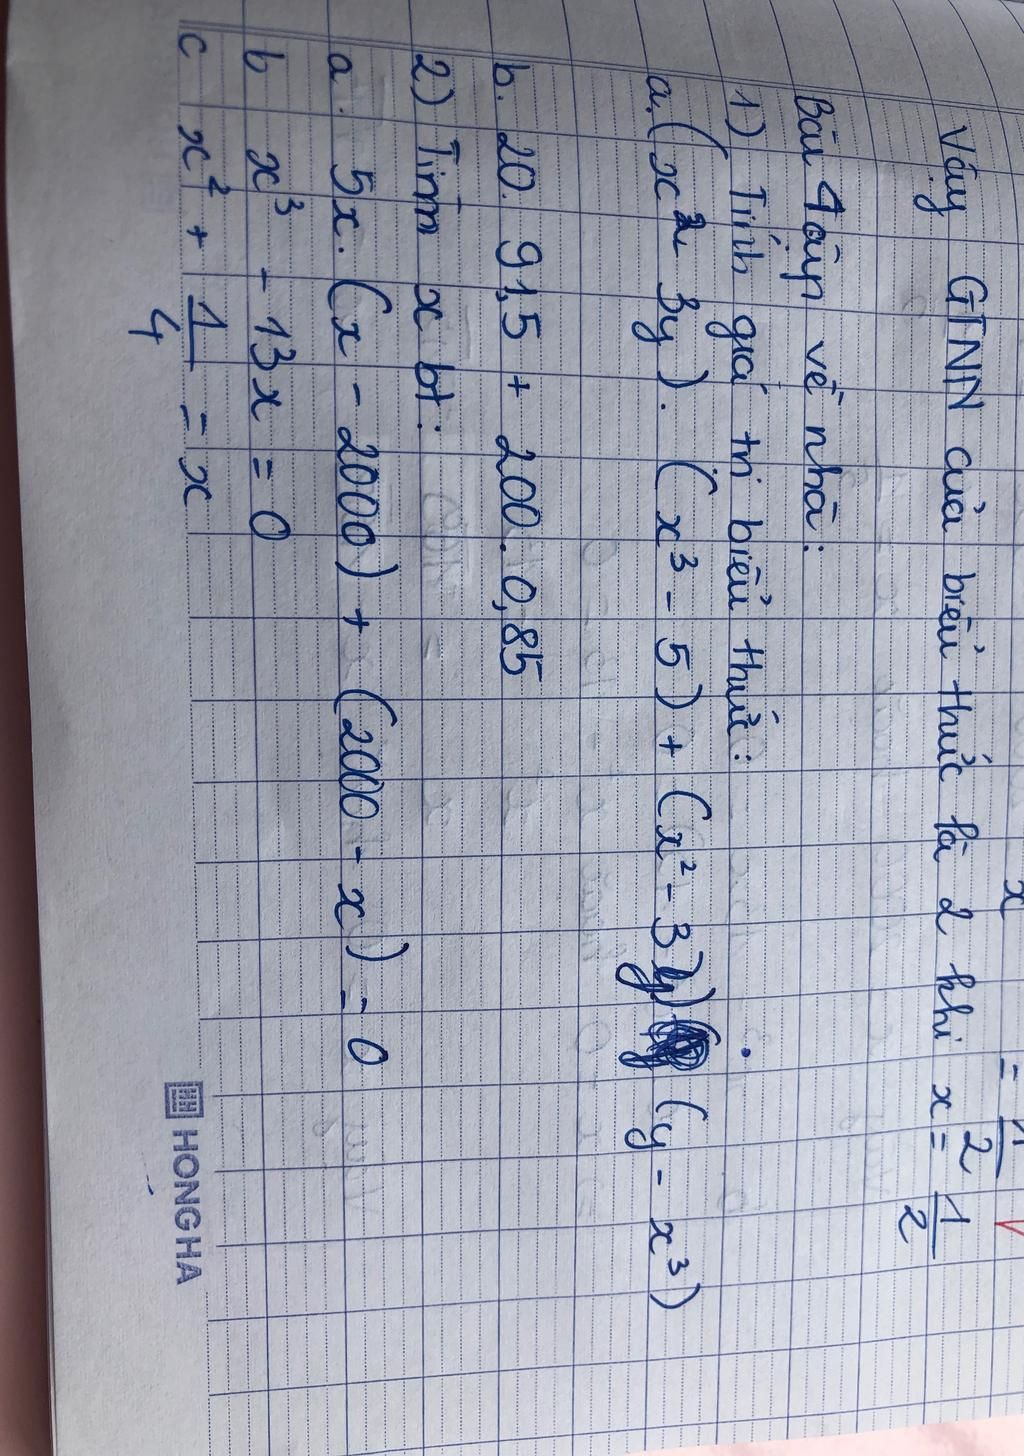 x
= 1/2
Vậy GTNN của biểu thức là 2 khi x = 1/2
Bài tập về nhà:
1) Tính giá trị biểu thức:
a. (x² - 3y). (x³ - 5) + (x² - 3y) . (y - x³)
b. 20. 91,5 + 200. 0,85
2) Tìm x bt:
a. 5x. (x - 2000) + (2000 - x) = 0
b x³ - 13x = 0
c x² + 1/4 = x
HONG HA